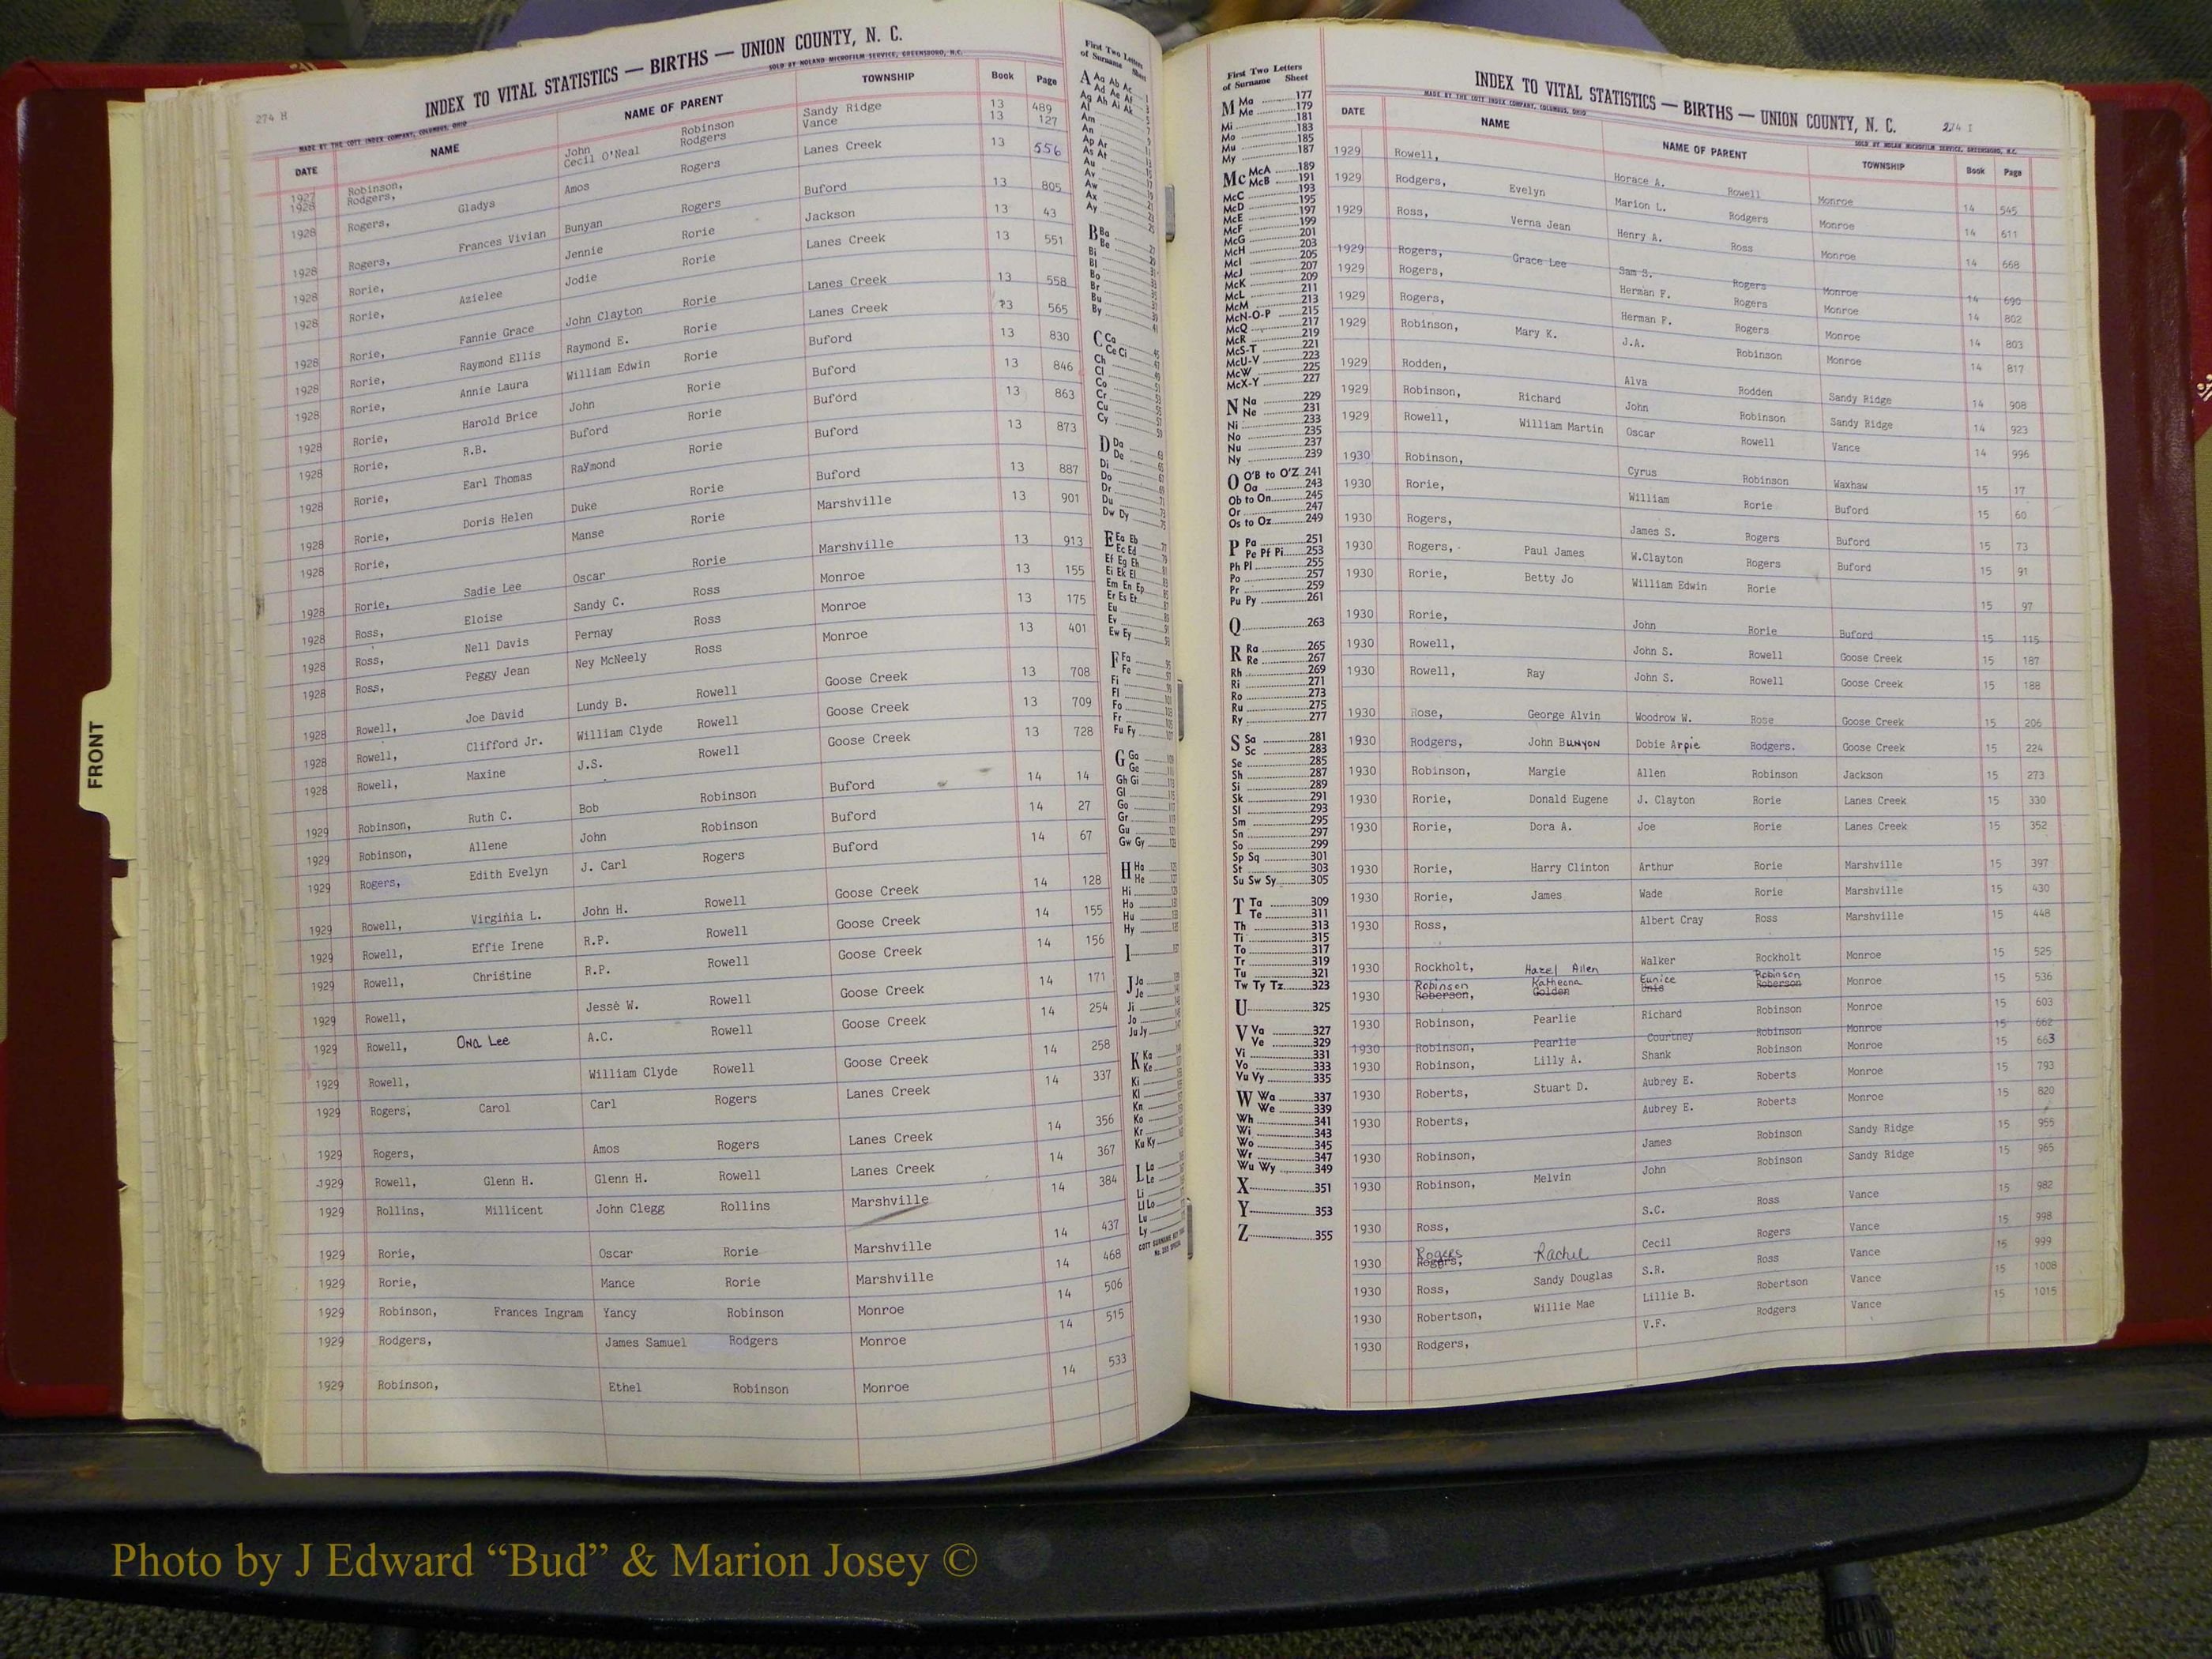 274 H
INDEX TO VITAL STATISTICS — BIRTHS — UNION COUNTY, N. C.
MADE BY THE COTT INDEX COMPANY, COLUMBUS, OHIO SOLD BY NOLAND MICROFILM SERVICE, GREENSBORO, N.C.
DATE NAME NAME OF PARENT TOWNSHIP Book Page
1927 Robinson, John Robinson Sandy Ridge 13 489
1928 Rodgers, Cecil O'Neal Rodgers Vance 13 127
1928 Rogers, Gladys Amos Rogers Lanes Creek 13 556
1928 Rogers, Frances Vivian Bunyan Rogers Buford 13 805
1928 Rorie, Jennie Rorie Jackson 13 43
1928 Rorie, Azielee Jodie Rorie Lanes Creek 13 551
1928 Rorie, Fannie Grace John Clayton Rorie Lanes Creek 13 558
1928 Rorie, Raymond Ellis Raymond E. Rorie Lanes Creek 13 565
1928 Rorie, Annie Laura William Edwin Rorie Buford 13 830
1928 Rorie, Harold Brice John Rorie Buford 13 846
1928 Rorie, R.B. Buford Rorie Buford 13 863
1928 Rorie, Earl Thomas Raymond Rorie Buford 13 873
1928 Rorie, Doris Helen Duke Rorie Buford 13 887
1928 Rorie, Manse Rorie Marshville 13 901
1928 Rorie, Sadie Lee Oscar Rorie Marshville 13 913
1928 Ross, Eloise Sandy C. Ross Monroe 13 155
1928 Ross, Nell Davis Pernay Ross Monroe 13 175
1928 Ross, Peggy Jean Ney McNeely Ross Monroe 13 401
1928 Rowell, Joe David Lundy B. Rowell Goose Creek 13 708
1928 Rowell, Clifford Jr. William Clyde Rowell Goose Creek 13 709
1928 Rowell, Maxine J.S. Rowell Goose Creek 13 728
1929 Robinson, Ruth C. Bob Robinson Buford 14 14
1929 Robinson, Allene John Robinson Buford 14 27
1929 Rogers, Edith Evelyn J. Carl Rogers Buford 14 67
1929 Rowell, Virginia L. John H. Rowell Goose Creek 14 128
1929 Rowell, Effie Irene R.P. Rowell Goose Creek 14 155
1929 Rowell, Christine R.P. Rowell Goose Creek 14 156
1929 Rowell, Jesse W. Rowell Goose Creek 14 171
1929 Rowell, Ona Lee A.C. Rowell Goose Creek 14 254
1929 Rowell, William Clyde Rowell Goose Creek 14 258
1929 Rogers, Carol Carl Rogers Lanes Creek 14 337
1929 Rogers, Amos Rogers Lanes Creek 14 356
1929 Rowell, Glenn H. Glenn H. Rowell Lanes Creek 14 367
1929 Rollins, Millicent John Clegg Rollins Marshville 14 384
1929 Rorie, Oscar Rorie Marshville 14 437
1929 Rorie, Mance Rorie Marshville 14 468
1929 Robinson, Frances Ingram Yancy Robinson Monroe 14 506
1929 Rodgers, James Samuel Rodgers Monroe 14 515
1929 Robinson, Ethel Robinson Monroe 14 533
FRONT
First Two Letters
of Surname Sheet
A Aa Ab Ac
Ad Ae Af
Ag Ah Ai Ak
Al
Am
An
Ap Ar
As At
Au
Av
Aw
Ax
Ay
B Ba
Be
Bi
Bl
Bo
Br
Bu
By
C Ca
Ce Ci
Ch
Cl
Co
Cr
Cu
Cy
D Da
De
Di
Do
Dr
Du
Dw Dy
E Ea Eb
Ec Ed
Ef Eg Eh
Ei Ek El
Em En Ep
Er Es Et
Eu
Ev
Ew Ey
F Fa
Fe
Fi
Fl
Fo
Fr
Fu Fy
G Ga
Ge
Gh Gi
Gl
Go
Gr
Gu
Gw Gy
H Ha
He
Hi
Ho
Hu
Hy
I
J Ja
Je
Ji
Jo
Ju Jy
K Ka
Ke
Ki
Kl
Kn
Ko
Kr
Ku Ky
L La
Le
Li
Ll Lo
Lu
Ly
First Two Letters
of Surname Sheet
M Ma 177
Me 179
Mi 181
Mo 183
Mu 185
My 187
Mc McA 189
McB 191
McC 193
McD 195
McE 197
McF 199
McG 201
McH 203
McI 205
McJ 207
McK 209
McL 211
McM 213
McN-O-P 215
McQ 217
McR 219
McS-T 221
McU-V 223
McW 225
McX-Y 227
N Na 229
Ne 231
Ni 233
No 235
Nu 237
Ny 239
O O'B to O'Z 241
Oa 243
Ob to On 245
Or 247
Os to Oz 249
P Pa 251
Pe Pf Pi 253
Ph Pl 255
Po 257
Pr 259
Pu Py 261
Q 263
R Ra 265
Re 267
Rh 269
Ri 271
Ro 273
Ru 275
Ry 277
S Sa 281
Sc 283
Se 285
Sh 287
Si 289
Sk 291
Sl 293
Sm 295
Sn 297
So 299
Sp Sq 301
St 303
Su Sw Sy 305
T Ta 309
Te 311
Th 313
Ti 315
To 317
Tr 319
Tu 321
Tw Ty Tz 323
U 325
V Va 327
Ve 329
Vi 331
Vo 333
Vu Vy 335
W Wa 337
We 339
Wh 341
Wi 343
Wo 345
Wr 347
Wu Wy 349
X 351
Y 353
Z 355
INDEX TO VITAL STATISTICS — BIRTHS — UNION COUNTY, N. C. 274 I
MADE BY THE COTT INDEX COMPANY, COLUMBUS, OHIO SOLD BY NOLAN MICROFILM SERVICE, GREENSBORO, N.C.
DATE NAME NAME OF PARENT TOWNSHIP Book Page
1929 Rowell, Horace A. Rowell Monroe 14 545
1929 Rodgers, Evelyn Marion L. Rodgers Monroe 14 611
1929 Ross, Verna Jean Henry A. Ross Monroe 14 668
1929 Rogers, Grace Lee Sam S. Rogers Monroe 14 690
1929 Rogers, Herman F. Rogers Monroe 14 802
1929 Rogers, Herman F. Rogers Monroe 14 803
1929 Robinson, Mary K. J.A. Robinson Monroe 14 817
1929 Rodden, Alva Rodden Sandy Ridge 14 908
1929 Robinson, Richard John Robinson Sandy Ridge 14 923
1929 Rowell, William Martin Oscar Rowell Vance 14 996
1930 Robinson, Cyrus Robinson Waxhaw 15 17
1930 Rorie, William Rorie Buford 15 60
1930 Rogers, James S. Rogers Buford 15 73
1930 Rogers, Paul James W.Clayton Rogers Buford 15 91
1930 Rorie, Betty Jo William Edwin Rorie 15 97
1930 Rorie, John Rorie Buford 15 115
1930 Rowell, John S. Rowell Goose Creek 15 187
1930 Rowell, Ray John S. Rowell Goose Creek 15 188
1930 Rose, George Alvin Woodrow W. Rose Goose Creek 15 206
1930 Rodgers, John Bunyon Dobie Arpie Rodgers. Goose Creek 15 224
1930 Robinson, Margie Allen Robinson Jackson 15 273
1930 Rorie, Donald Eugene J. Clayton Rorie Lanes Creek 15 330
1930 Rorie, Dora A. Joe Rorie Lanes Creek 15 352
1930 Rorie, Harry Clinton Arthur Rorie Marshville 15 397
1930 Rorie, James Wade Rorie Marshville 15 430
1930 Ross, Albert Cray Ross Marshville 15 448
1930 Rockholt, Hazel Allen Walker Rockholt Monroe 15 525
Robinson Katheena Eunice Robinson
1930 Roberson, Golden Unie Roberson Monroe 15 536
1930 Robinson, Pearlie Richard Robinson Monroe 15 603
1930 Robinson, Pearlie Courtney Robinson Monroe 15 662
1930 Robinson, Lilly A. Shank Robinson Monroe 15 663
1930 Roberts, Stuart D. Aubrey E. Roberts Monroe 15 793
1930 Roberts, Aubrey E. Roberts Monroe 15 820
1930 Robinson, James Robinson Sandy Ridge 15 955
1930 Robinson, Melvin John Robinson Sandy Ridge 15 965
1930 Ross, S.C. Ross Vance 15 982
Rogers Rachel
1930 Rogers, Cecil Rogers Vance 15 998
1930 Ross, Sandy Douglas S.R. Ross Vance 15 999
1930 Robertson, Willie Mae Lillie B. Robertson Vance 15 1008
1930 Rodgers, V.F. Rodgers Vance 15 1015
Photo by J Edward “Bud” & Marion Josey ©